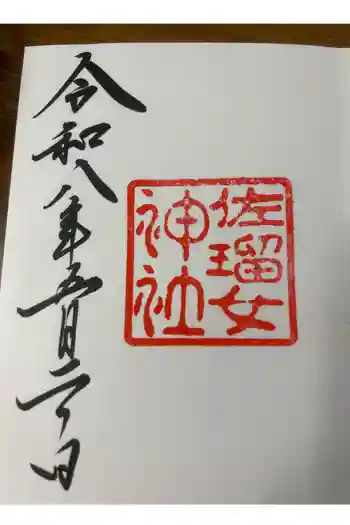 佐瑠女
神社
令和八年五月二日